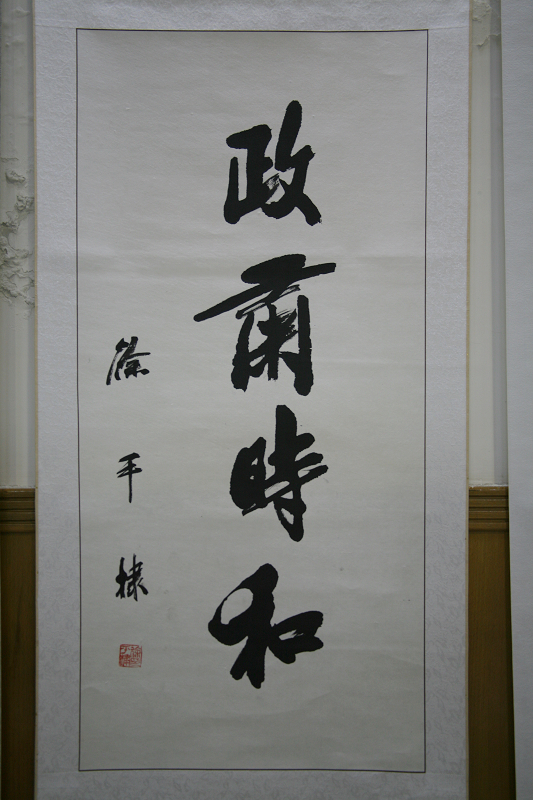 政肅時和
徐平棣